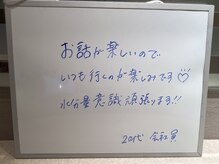 お話が楽しいので
いつも行くのが楽しみです♡
水分量意識頑張ります!!
20代 会社員